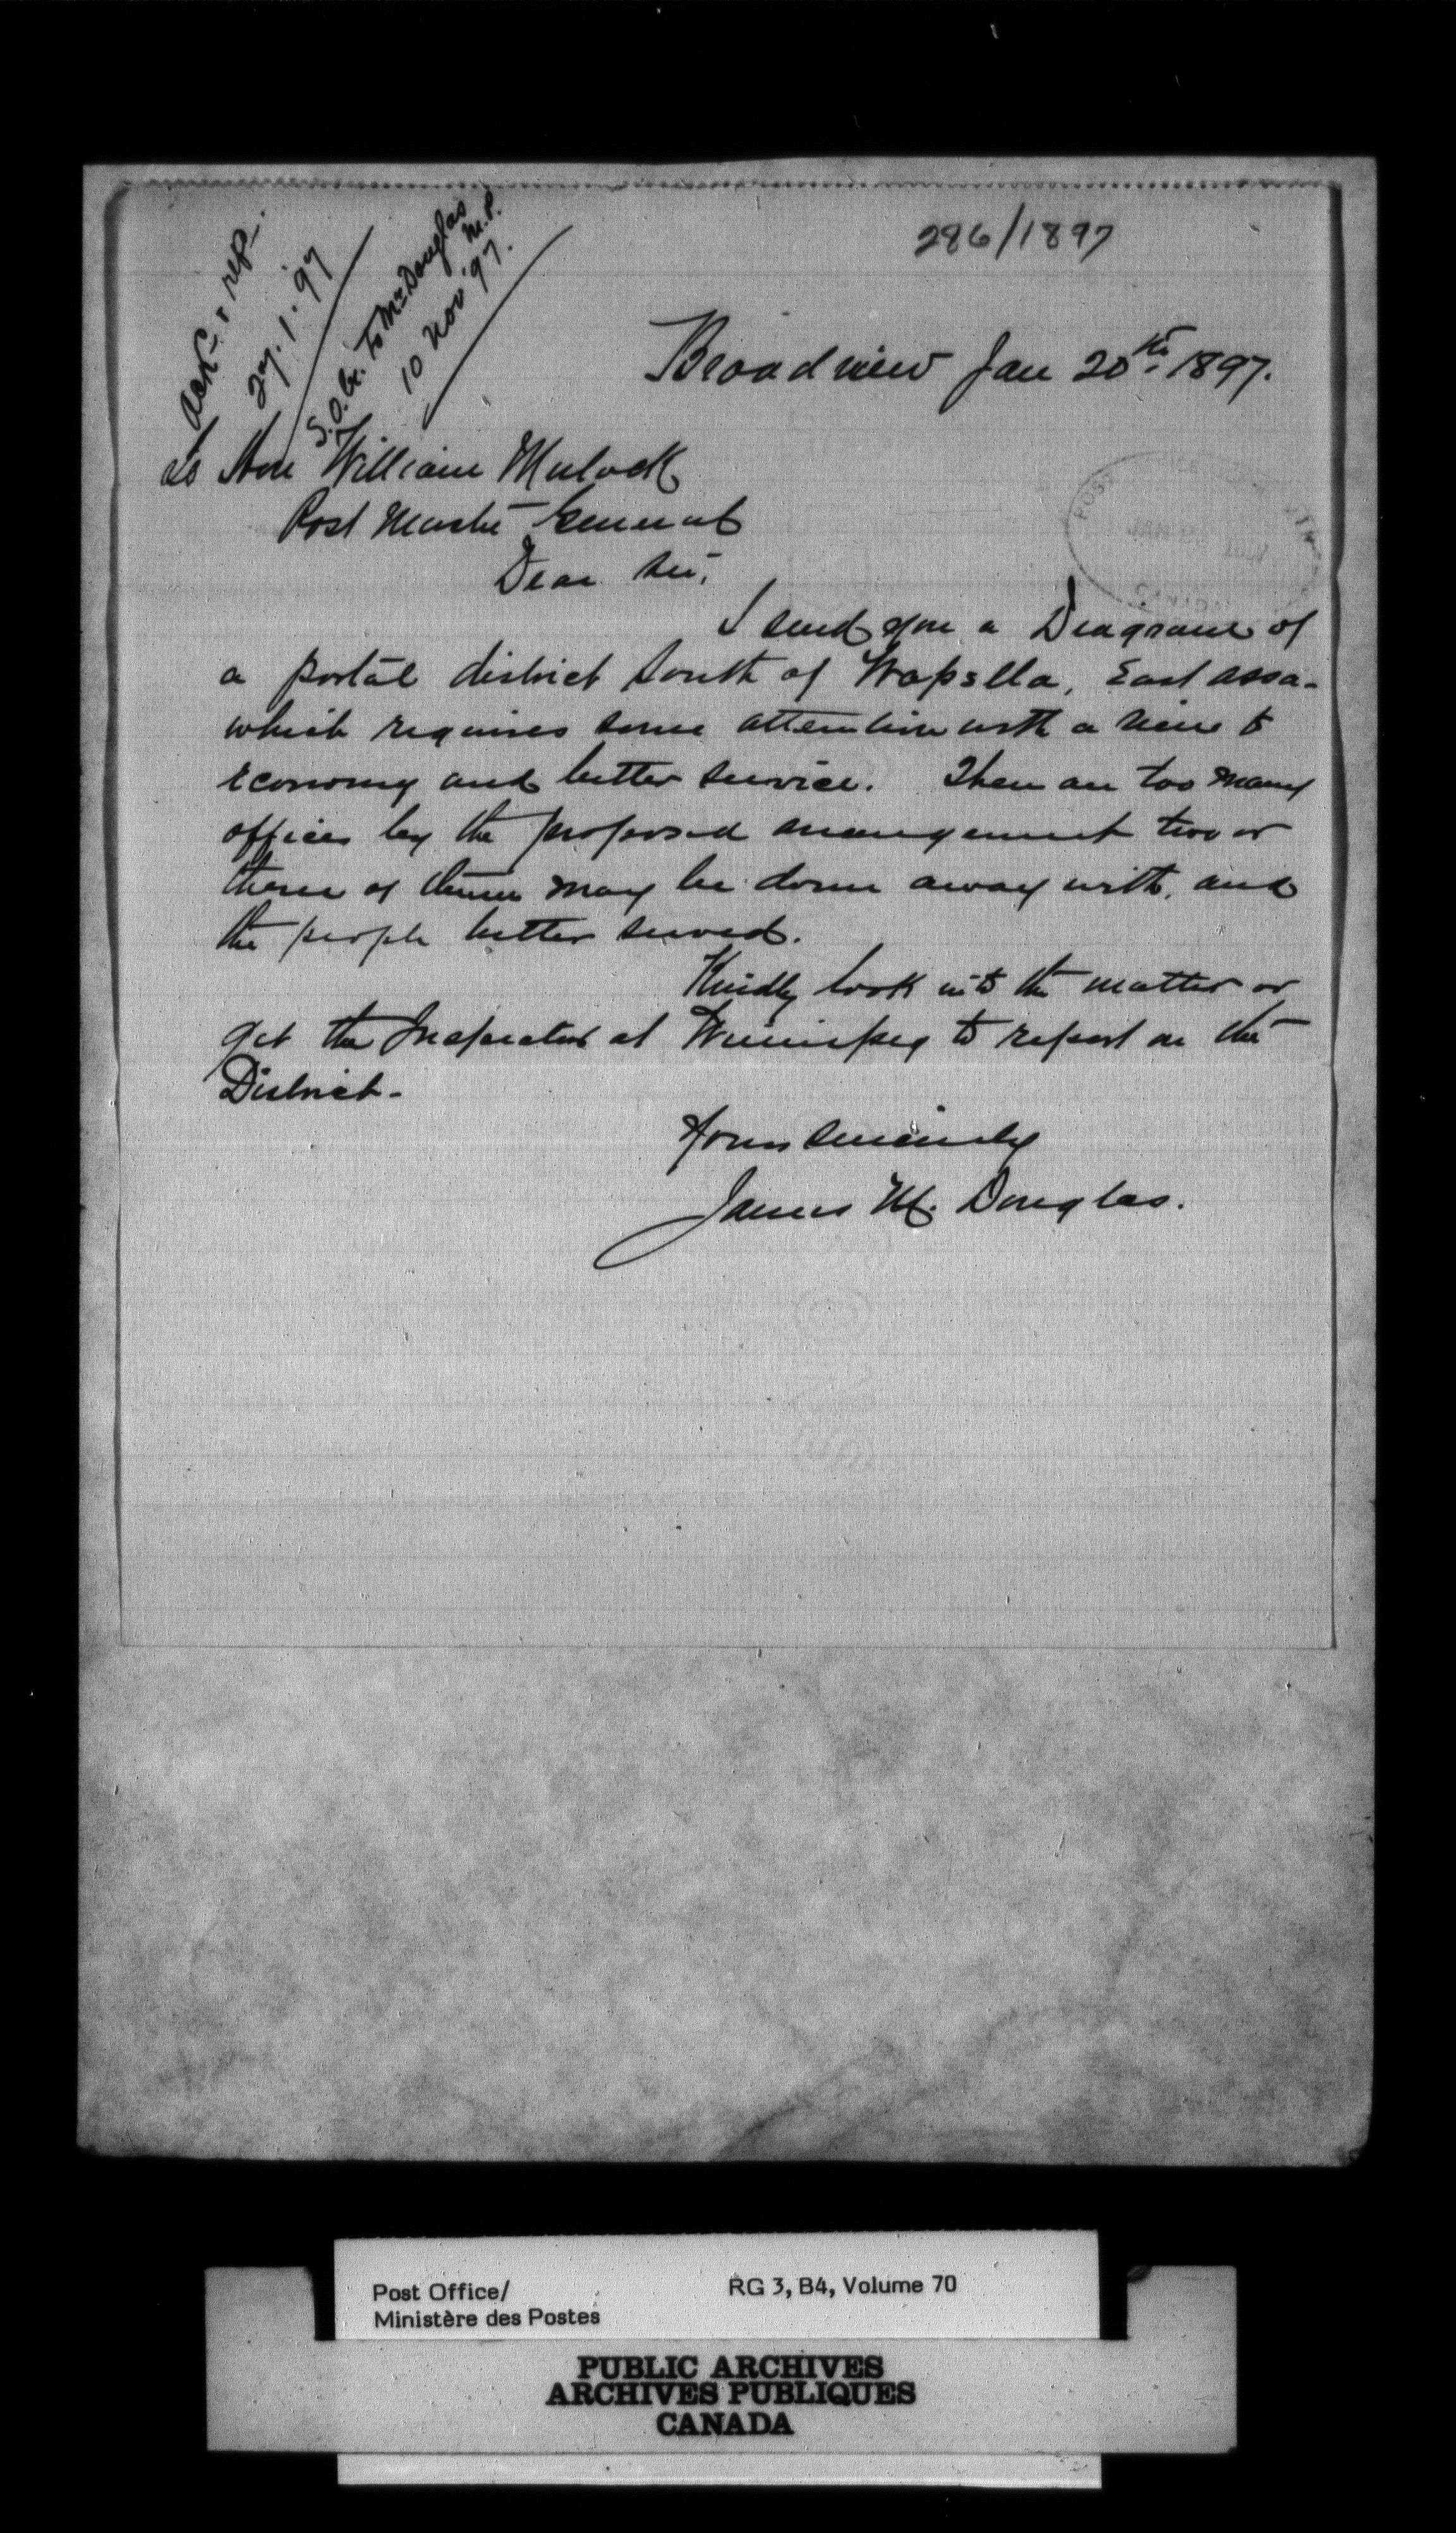 286/1897
Ack. & rep.
27.1.97
S.O. Br. To Mr Douglas
M.P.
10 Nov '97.
Broadview Jan 20th 1897.
To Hon William Mulock
Post Master General
Dear Sir,
I send you a Diagram of
a postal district south of Wapella, East Assa-
which requires some attention with a view to
economy and better service. There are too many
offices by the proposed arrangement two or
three of them may be done away with, and
the people better served.
Kindly look into the matter or
get the Inspector at Winnipeg to report on the
District-
Yours sincerely
James M. Douglas.
POST
Post Office/
Ministère des Postes
RG 3, B4, Volume 70
PUBLIC ARCHIVES
ARCHIVES PUBLIQUES
CANADA